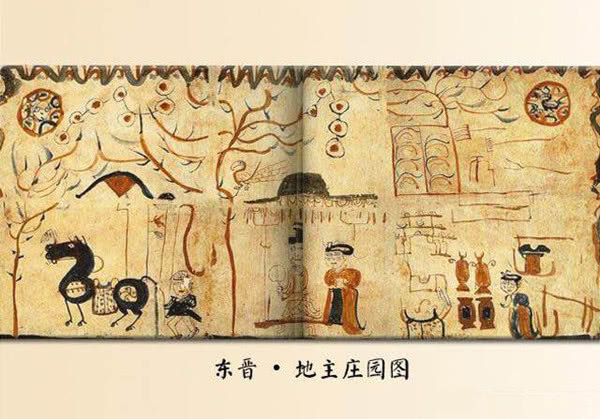 东晋·地主庄园图